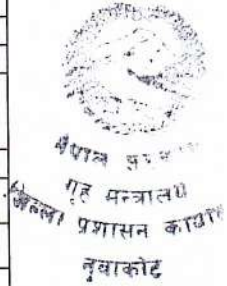 नेपाल
गृह मन्त्रालय
जिल्ला प्रशासन कार्याल
नुवाकोट